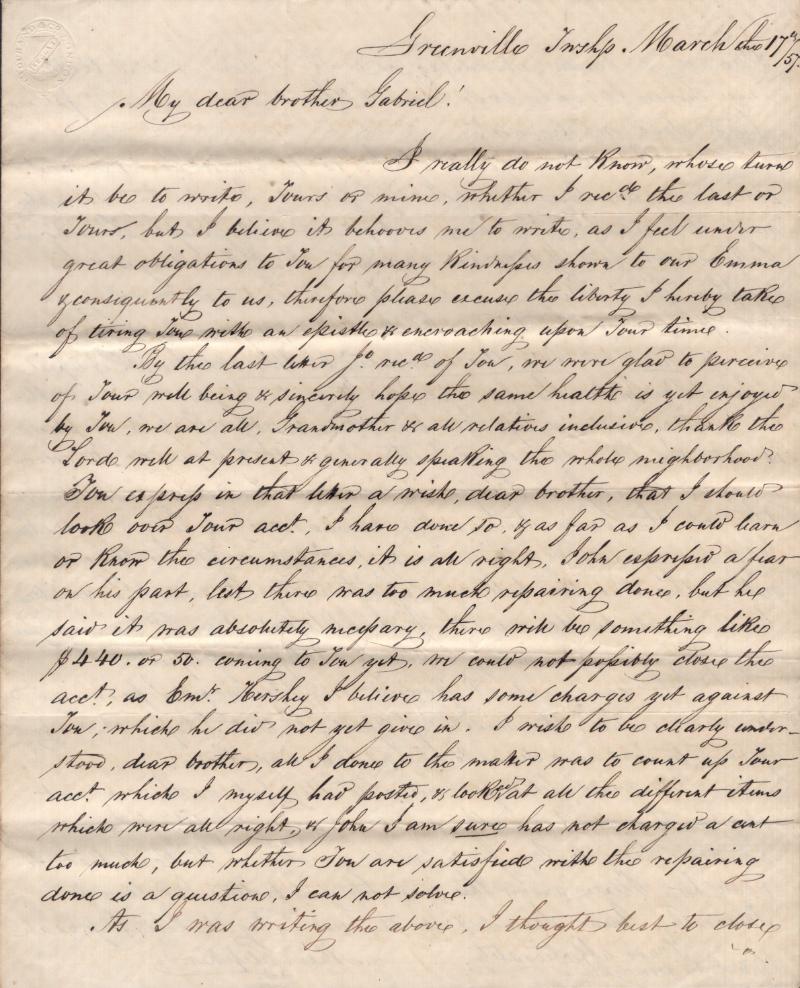 Greenville Twshp. March the 17th/57.
My dear brother Gabriel!
I really do not Know, whose turn
it be to write, Yours or mine, whether I recd the last or
Yours, but I believe it behooves me to write, as I feel under
great obligations to You for many Kindnesses shown to our Emma
& consequently to us, therefore please excuse the liberty I hereby take
of tiring You with an epistle & encroaching upon Your time.
By the last letter Jo. recd of You, we were glad to perceive
of Your well being & sincerely hope the same health is yet enjoyed
by You, we are all, Grandmother & all relatives inclusive, thank the
Lord well at present & generally speaking the whole neighborhood.
You express in that letter a wish, dear brother, that I should
look over Your acct. I have done so, & as far as I could learn
or Know the circumstances, it is all right, John expressed a fear
on his part, lest there was too much repairing done, but he
said it was absolutely necessary, there will be something like
$440. or 50. coming to You yet, we could not possibly close the
acct, as Eml. Hershey I believe has some charges yet against
You, which he did not yet give in. I wish to be clearly under-
stood, dear brother, all I done to the matter was to count up Your
acct. which I myself had posted, & looked at all the different items
which were all right, & John I am sure has not charged a cent
too much, but whether You are satisfied with the repairing
done is a question, I can not solve.
As I was writing the above, I thought best to close